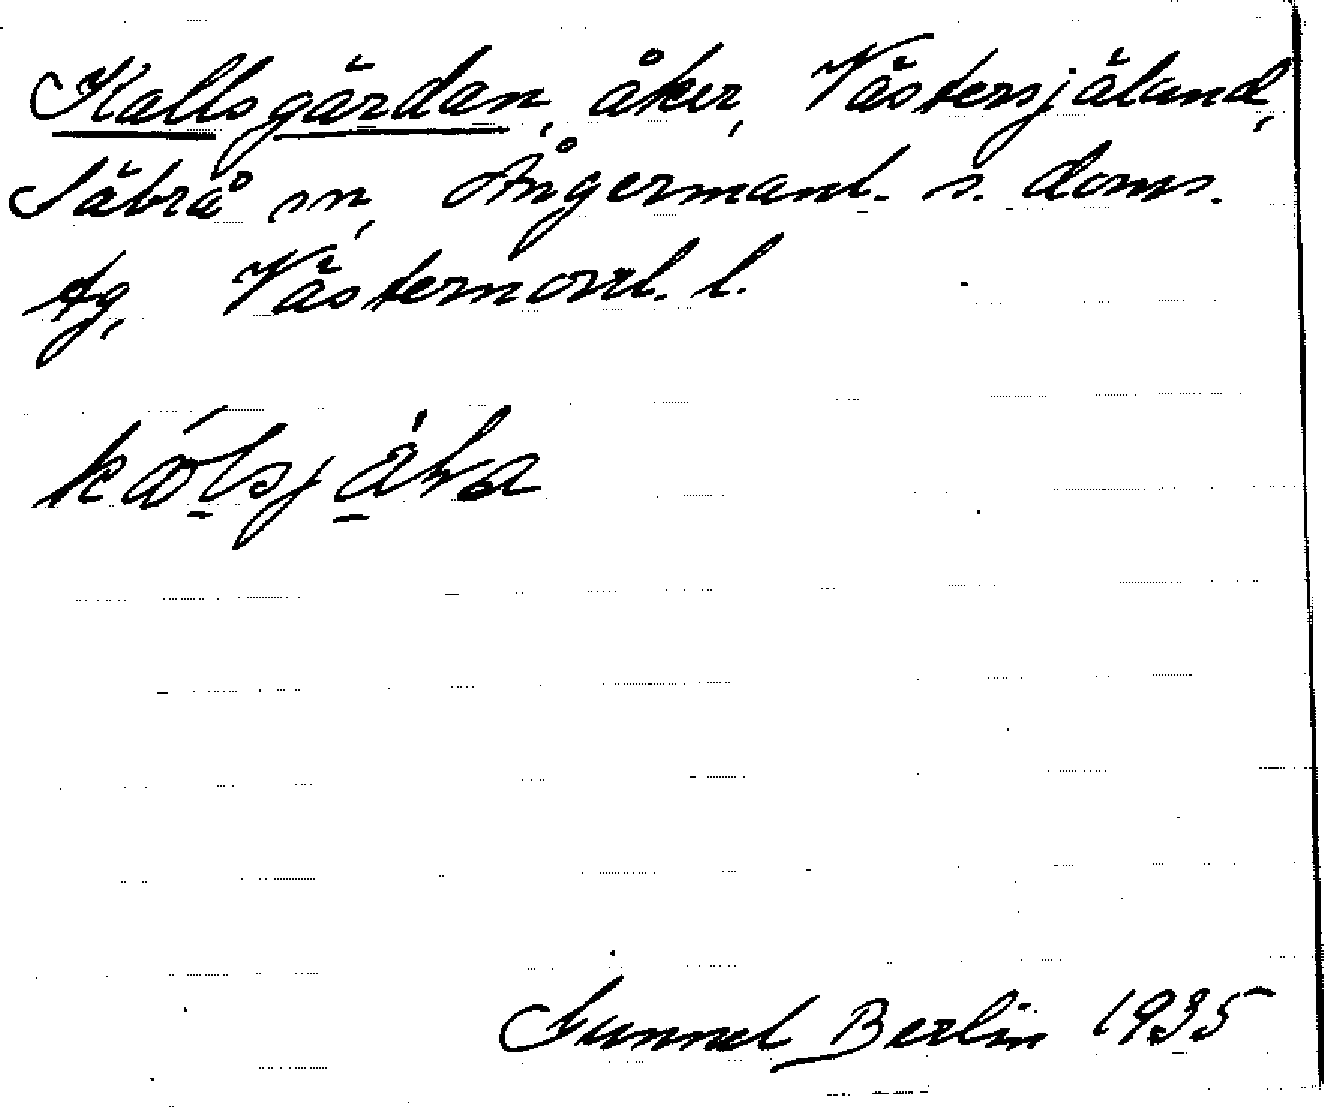 Kallsgärdan, åker, Västersjäland,
Säbrå sn, Ångermanl. s. doms.
tg, Västernorrl. l.
Gunnel Berlin 1935